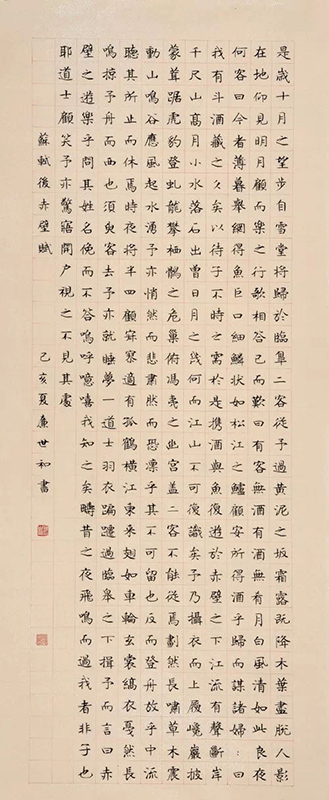 是歲十月之望步自雪堂將歸於臨皋二客從予過黃泥之坂霜露既降木葉盡脫人影
在地仰見明月顧而樂之行歌相答已而歎曰有客無酒有酒無肴月白風清如此良夜
何客曰今者薄暮舉網得魚巨口細鱗狀如松江之鱸顧安所得酒乎歸而謀諸婦〻曰
我有斗酒藏之久矣以待子不時之需於是攜酒與魚復遊於赤壁之下江流有聲斷岸
千尺山高月小水落石出曾日月之幾何而江山不可復識矣予乃攝衣而上履巉巖披
蒙茸踞虎豹登虬龍攀栖鶻之危巢俯馮夷之幽宮蓋二客不能從焉劃然長嘯草木震
動山鳴谷應風起水湧予亦悄然而悲肅然而恐凜乎其不可留也反而登舟放乎中流
聽其所止而休焉時夜將半四顧寂寥適有孤鶴橫江東來翅如車輪玄裳縞衣戛然長
鳴掠予舟而西也須臾客去予亦就睡夢一道士羽衣蹁躚過臨皋之下揖予而言曰赤
壁之遊樂乎問其姓名俛而不答嗚呼噫嘻我知之矣疇昔之夜飛鳴而過我者非子也
耶道士顧笑予亦驚寤開戶視之不見其處
蘇軾後赤壁賦
己亥夏廉世和書